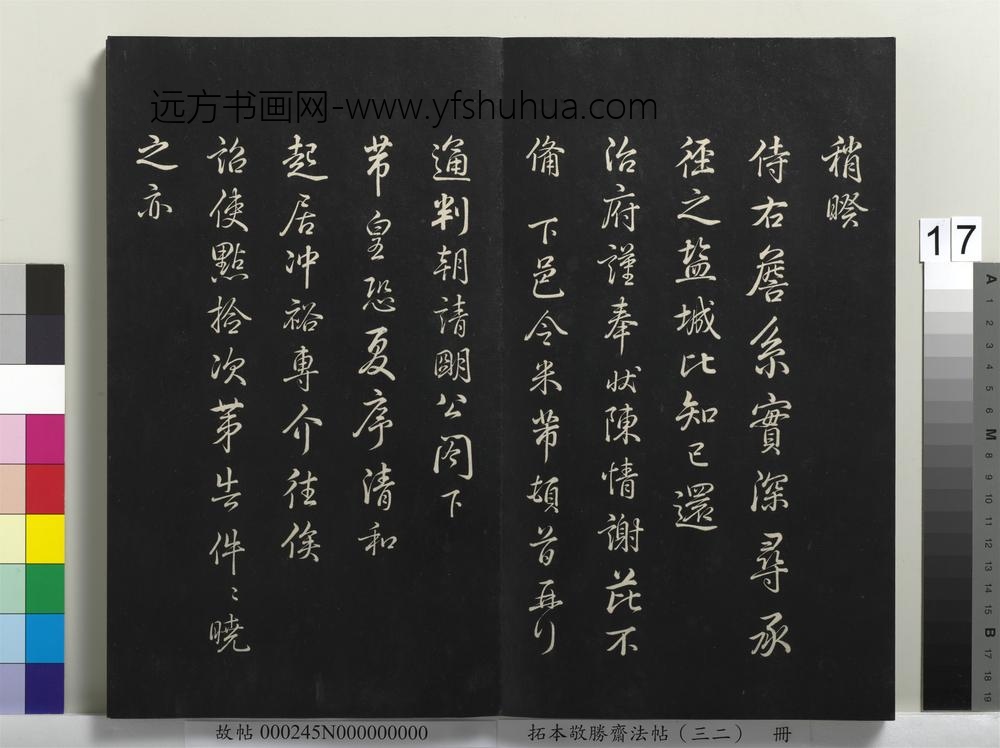 远方书画网-www.yfshuhua.com
稍睽
侍右詹系實深尋承
徑之鹽城比知已還
治府謹奉狀陳情謝芘不
備 下邑令米芾頓首再拜
通判朝請明公閤下
芾皇恐夏序清和
起居冲裕專介往俟
詔使點拾次第告件〻曉
之亦
17
A
1
2
3
4
5
6
M
8
9
10
11
12
13
14
15
B
17
18
19
故帖 000245N000000000
拓本敬勝齋法帖（三二） 冊